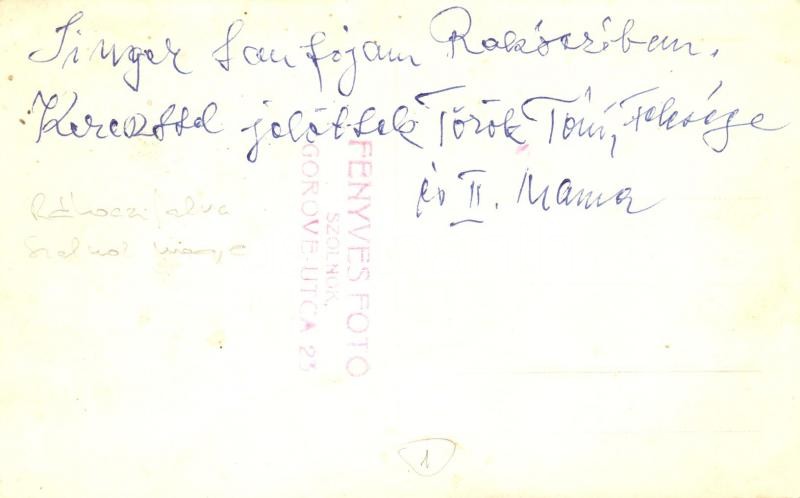 Singer tanfolyam Rákócziban.
Kereszttel jelöltek Török Töni, Felesége
és II. Mama
Rákóczifalva
Szolnok megye
FENYVES FOTO
SZOLNOK,
GOROVE-UTCA 23
1